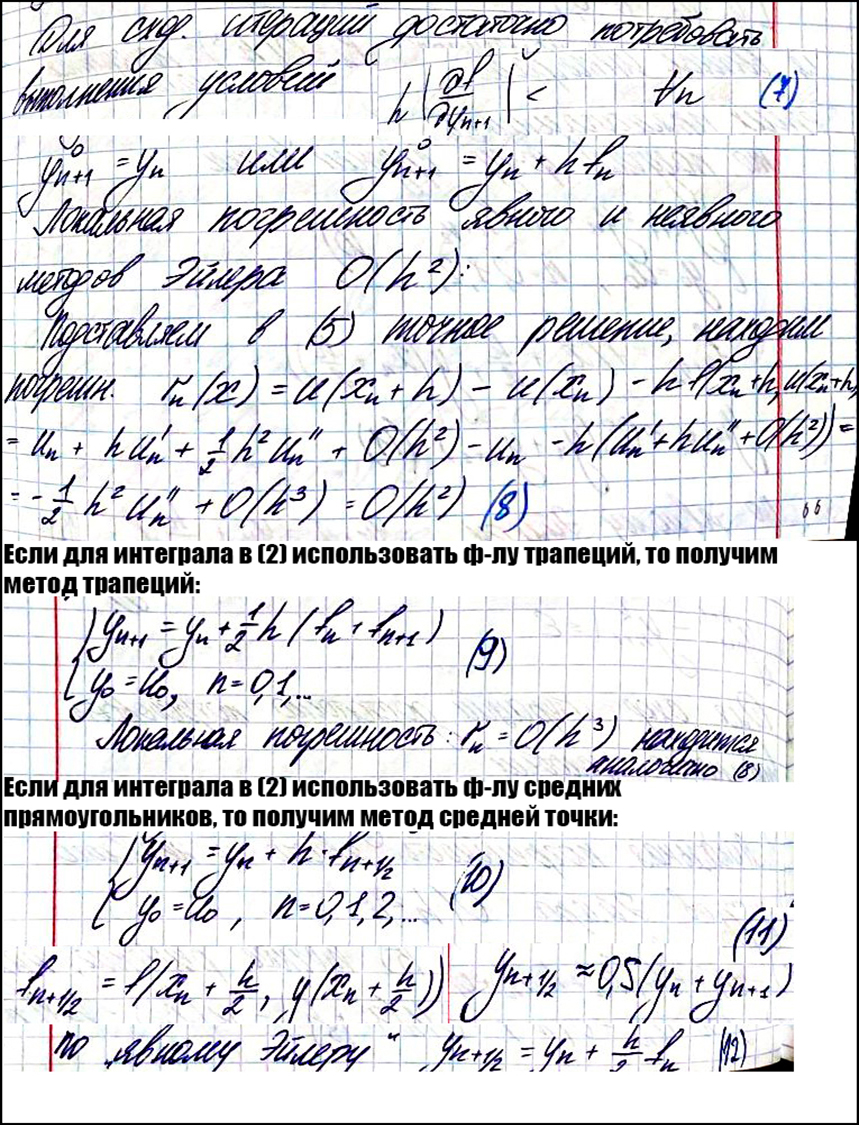 Для сход. итераций достаточно потребовать
выполнения условий h |∂f/∂yₙ₊₁| < ∀n (7)
y⁰ₙ₊₁ = yₙ или y⁰ₙ₊₁ = yₙ + hfₙ
Локальная погрешность явного и неявного
методов Эйлера O(h²):
Подставляем в (5) точное решение, находим
погрешн. rₙ(x) = u(xₙ+h) - u(xₙ) - hf(xₙ+h, u(xₙ+h)
= uₙ + hu'ₙ + 1/2 h²u''ₙ + O(h²) - uₙ - h(u'ₙ + hu''ₙ + O(h²)) =
= -1/2 h²u''ₙ + O(h³) = O(h²) (8)
Если для интеграла в (2) использовать ф-лу трапеций, то получим
метод трапеций:
{yₙ₊₁ = yₙ + 1/2 h (fₙ + fₙ₊₁)
y₀ = u₀, n = 0,1,... (9)
Локальная погрешность: rₙ = O(h³) находится
аналогично (8)
Если для интеграла в (2) использовать ф-лу средних
прямоугольников, то получим метод средней точки:
{yₙ₊₁ = yₙ + h·fₙ₊₁/₂
y₀ = u₀, n = 0,1,2,... (10)
fₙ₊₁/₂ = f(xₙ + h/2, y(xₙ + h/2)) yₙ₊₁/₂ ≈ 0,5(yₙ + yₙ₊₁) (11)
по „явному Эйлеру“ yₙ₊₁/₂ = yₙ + h/2 fₙ (12)